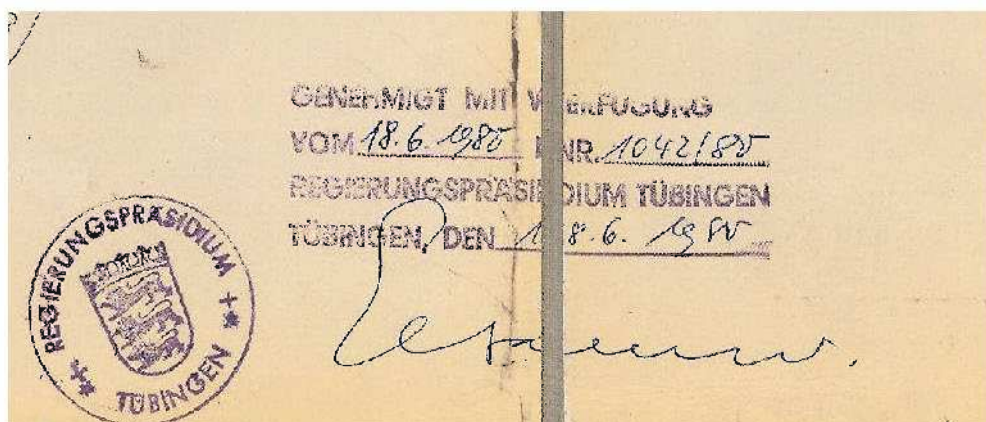 GENEHMIGT MIT VERFÜGUNG
VOM 18.6.1985 NR. 1042/85
REGIERUNGSPRÄSIDIUM TÜBINGEN
TÜBINGEN, DEN 18.6.1985
REGIERUNGSPRÄSIDIUM
TÜBINGEN